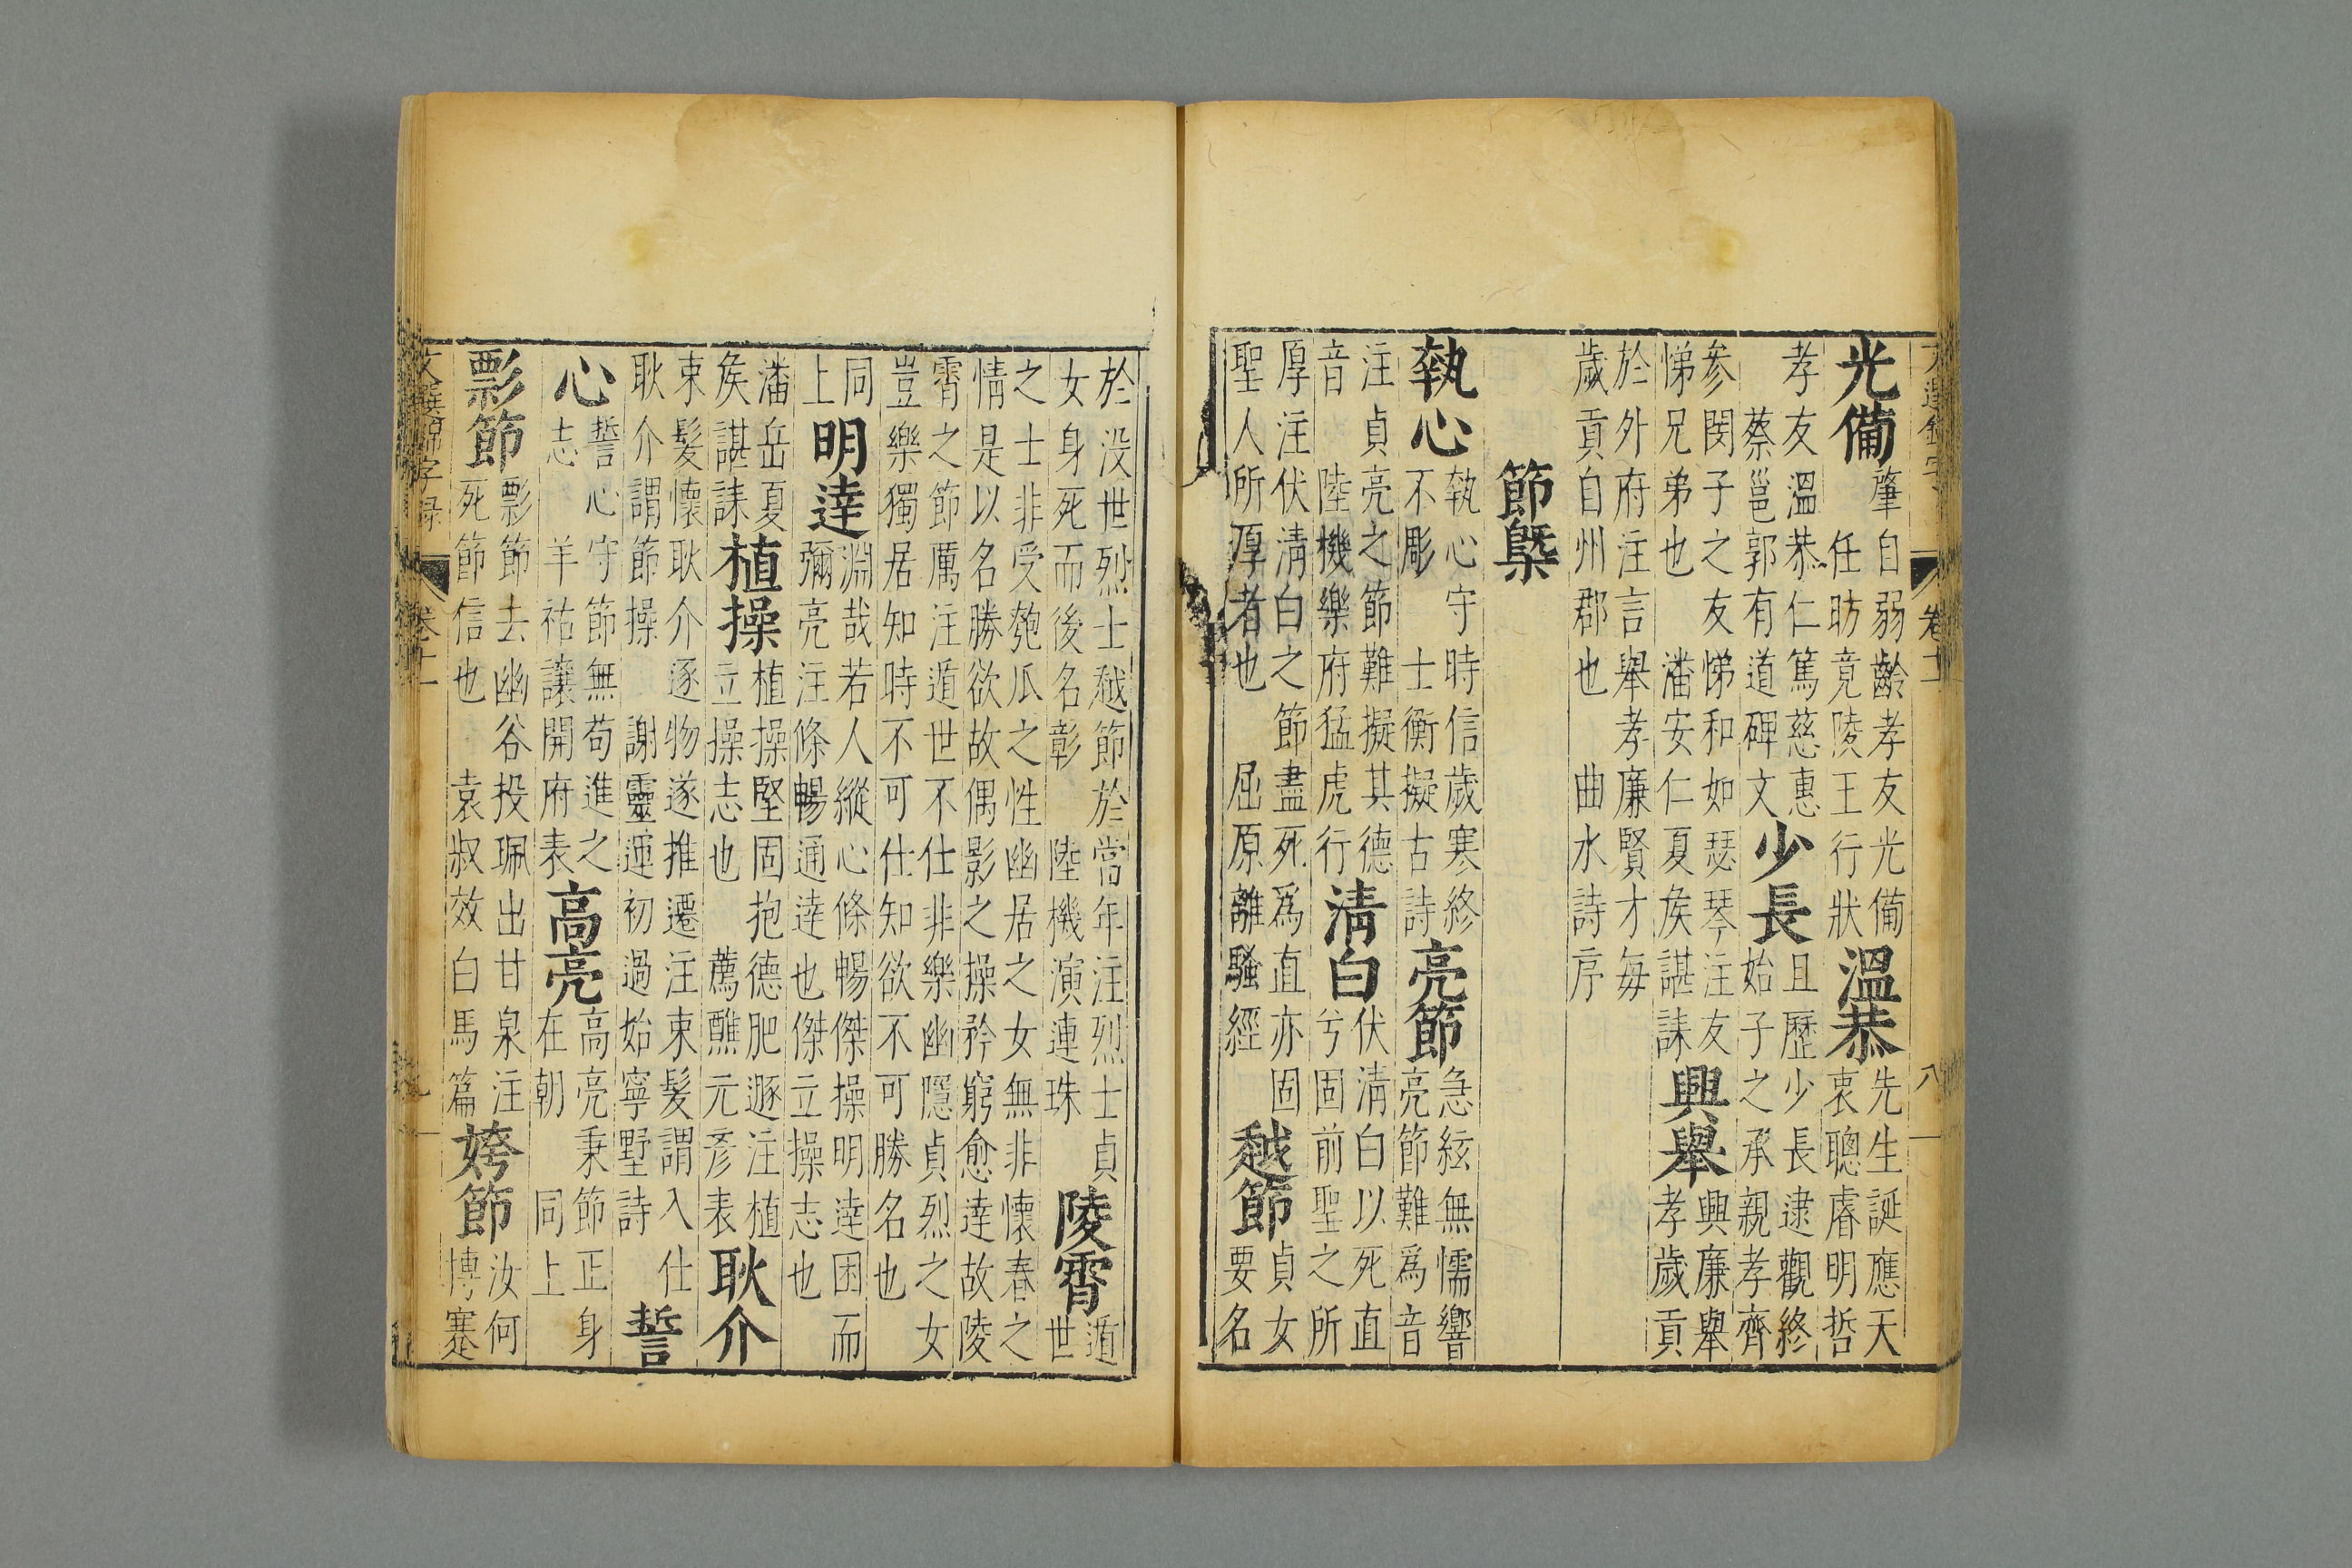 光備 肇自弱齡孝友光備 任昉竟陵王行狀 溫恭 先生誕應天衷聰睿明哲
孝友溫恭仁篤慈惠 蔡邕郭有道碑文 少長 且歷少長逮觀終始子之承親孝齊
參閔子之友悌和如瑟琴注友悌兄弟也 潘安仁夏侯諶誄 興舉 興廉舉孝歲貢
於外府注言舉孝廉賢才每歲貢自州郡也 曲水詩序
節槩
執心 執心守時信歲寒終不彫 士衡擬古詩 亮節 急絃無懦響亮節難爲音
注貞亮之節難擬其德音 陸機樂府猛虎行 淸白 伏淸白以死直兮固前聖之所
厚注伏淸白之節盡死爲直亦固聖人所厚者也 屈原離騷經 越節 貞女要名
於沒世烈士越節於當年注烈士貞女身死而後名彰 陸機演連珠 陵霄 遁世
之士非受匏瓜之性幽居之女無非懷春之情是以名勝欲故偶影之操矜窮愈達故陵
霄之節厲注遁世不仕非樂幽隱貞烈之女豈樂獨居知時不可仕知欲不可勝名也
同上 明達 淵哉若人縱心條暢傑操明達困而彌亮注條暢通達也傑立操志也
潘岳夏侯諶誄 植操 植操堅固抱德肥遯注植立操志也 薦譙元彥表 耿介
束髮懷耿介逐物遂推遷注束髮謂入仕耿介謂節操 謝靈運初過始寧墅詩 誓
心 誓心守節無苟進之志 羊祜讓開府表 高亮 高亮秉節正身在朝 同上
影節 影節去幽谷投珮出甘泉注死節信也 袁叔效白馬篇 姱節 汝何博蹇
文選錦字錄 卷十一
卷十一 八